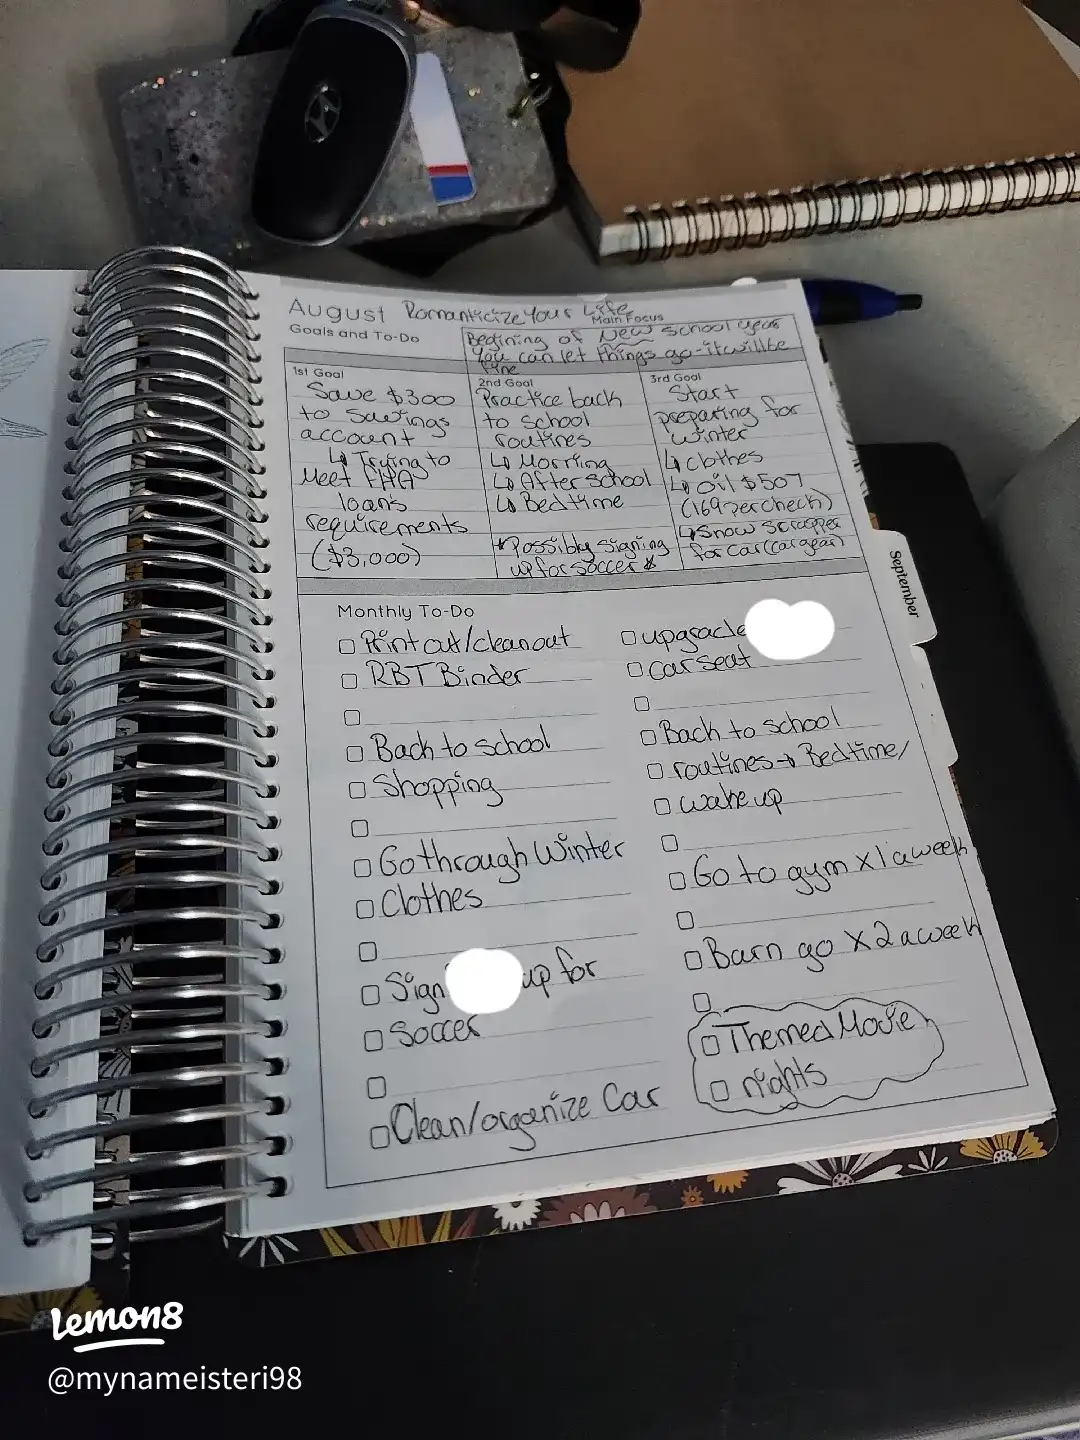 August Romanticize Your Life
Goals and To-Do
Main Focus
Begining of New school year
You can let things go-it will be
fine
1st Goal
Save $300
to savings
account
↳ Trying to
Meet FHA
loans
requirements
($3,000)
2nd Goal
Practice back
to school
routines
↳ Morning
↳ After school
↳ Bedtime
*Possibly signing
up for soccer*
3rd Goal
Start
preparing for
winter
↳ clothes
↳ oil $507
(169 per check)
↳ Snow scrapper
for car (car gear)
Monthly To-Do
Print out/clean out
RBT Binder
Back to school
Shopping
Go through Winter
Clothes
Sign up for
Soccer
Clean/organize Car
upgrade
car seat
Back to school
routines → Bedtime/
wake up
Go to gym x1 a week
Barn go x2 a week
Themed Movie
nights
September
lemon8
@mynameisteri98